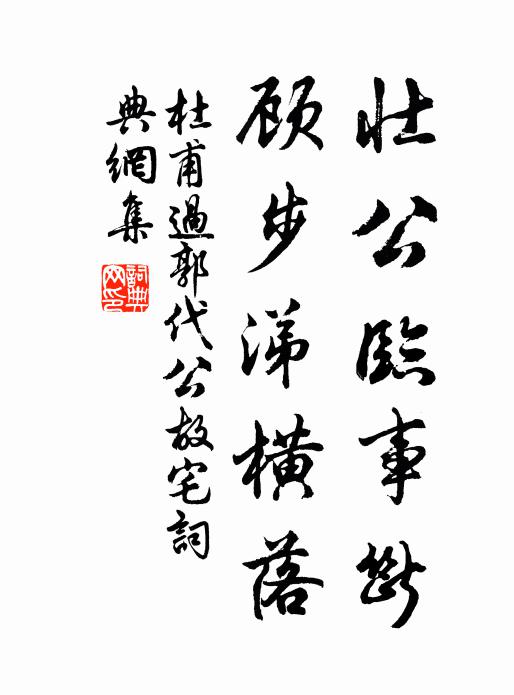 壮公臨事斷
顾步涕横落
杜甫過郭代公故宅詞
典網集
詞典网印